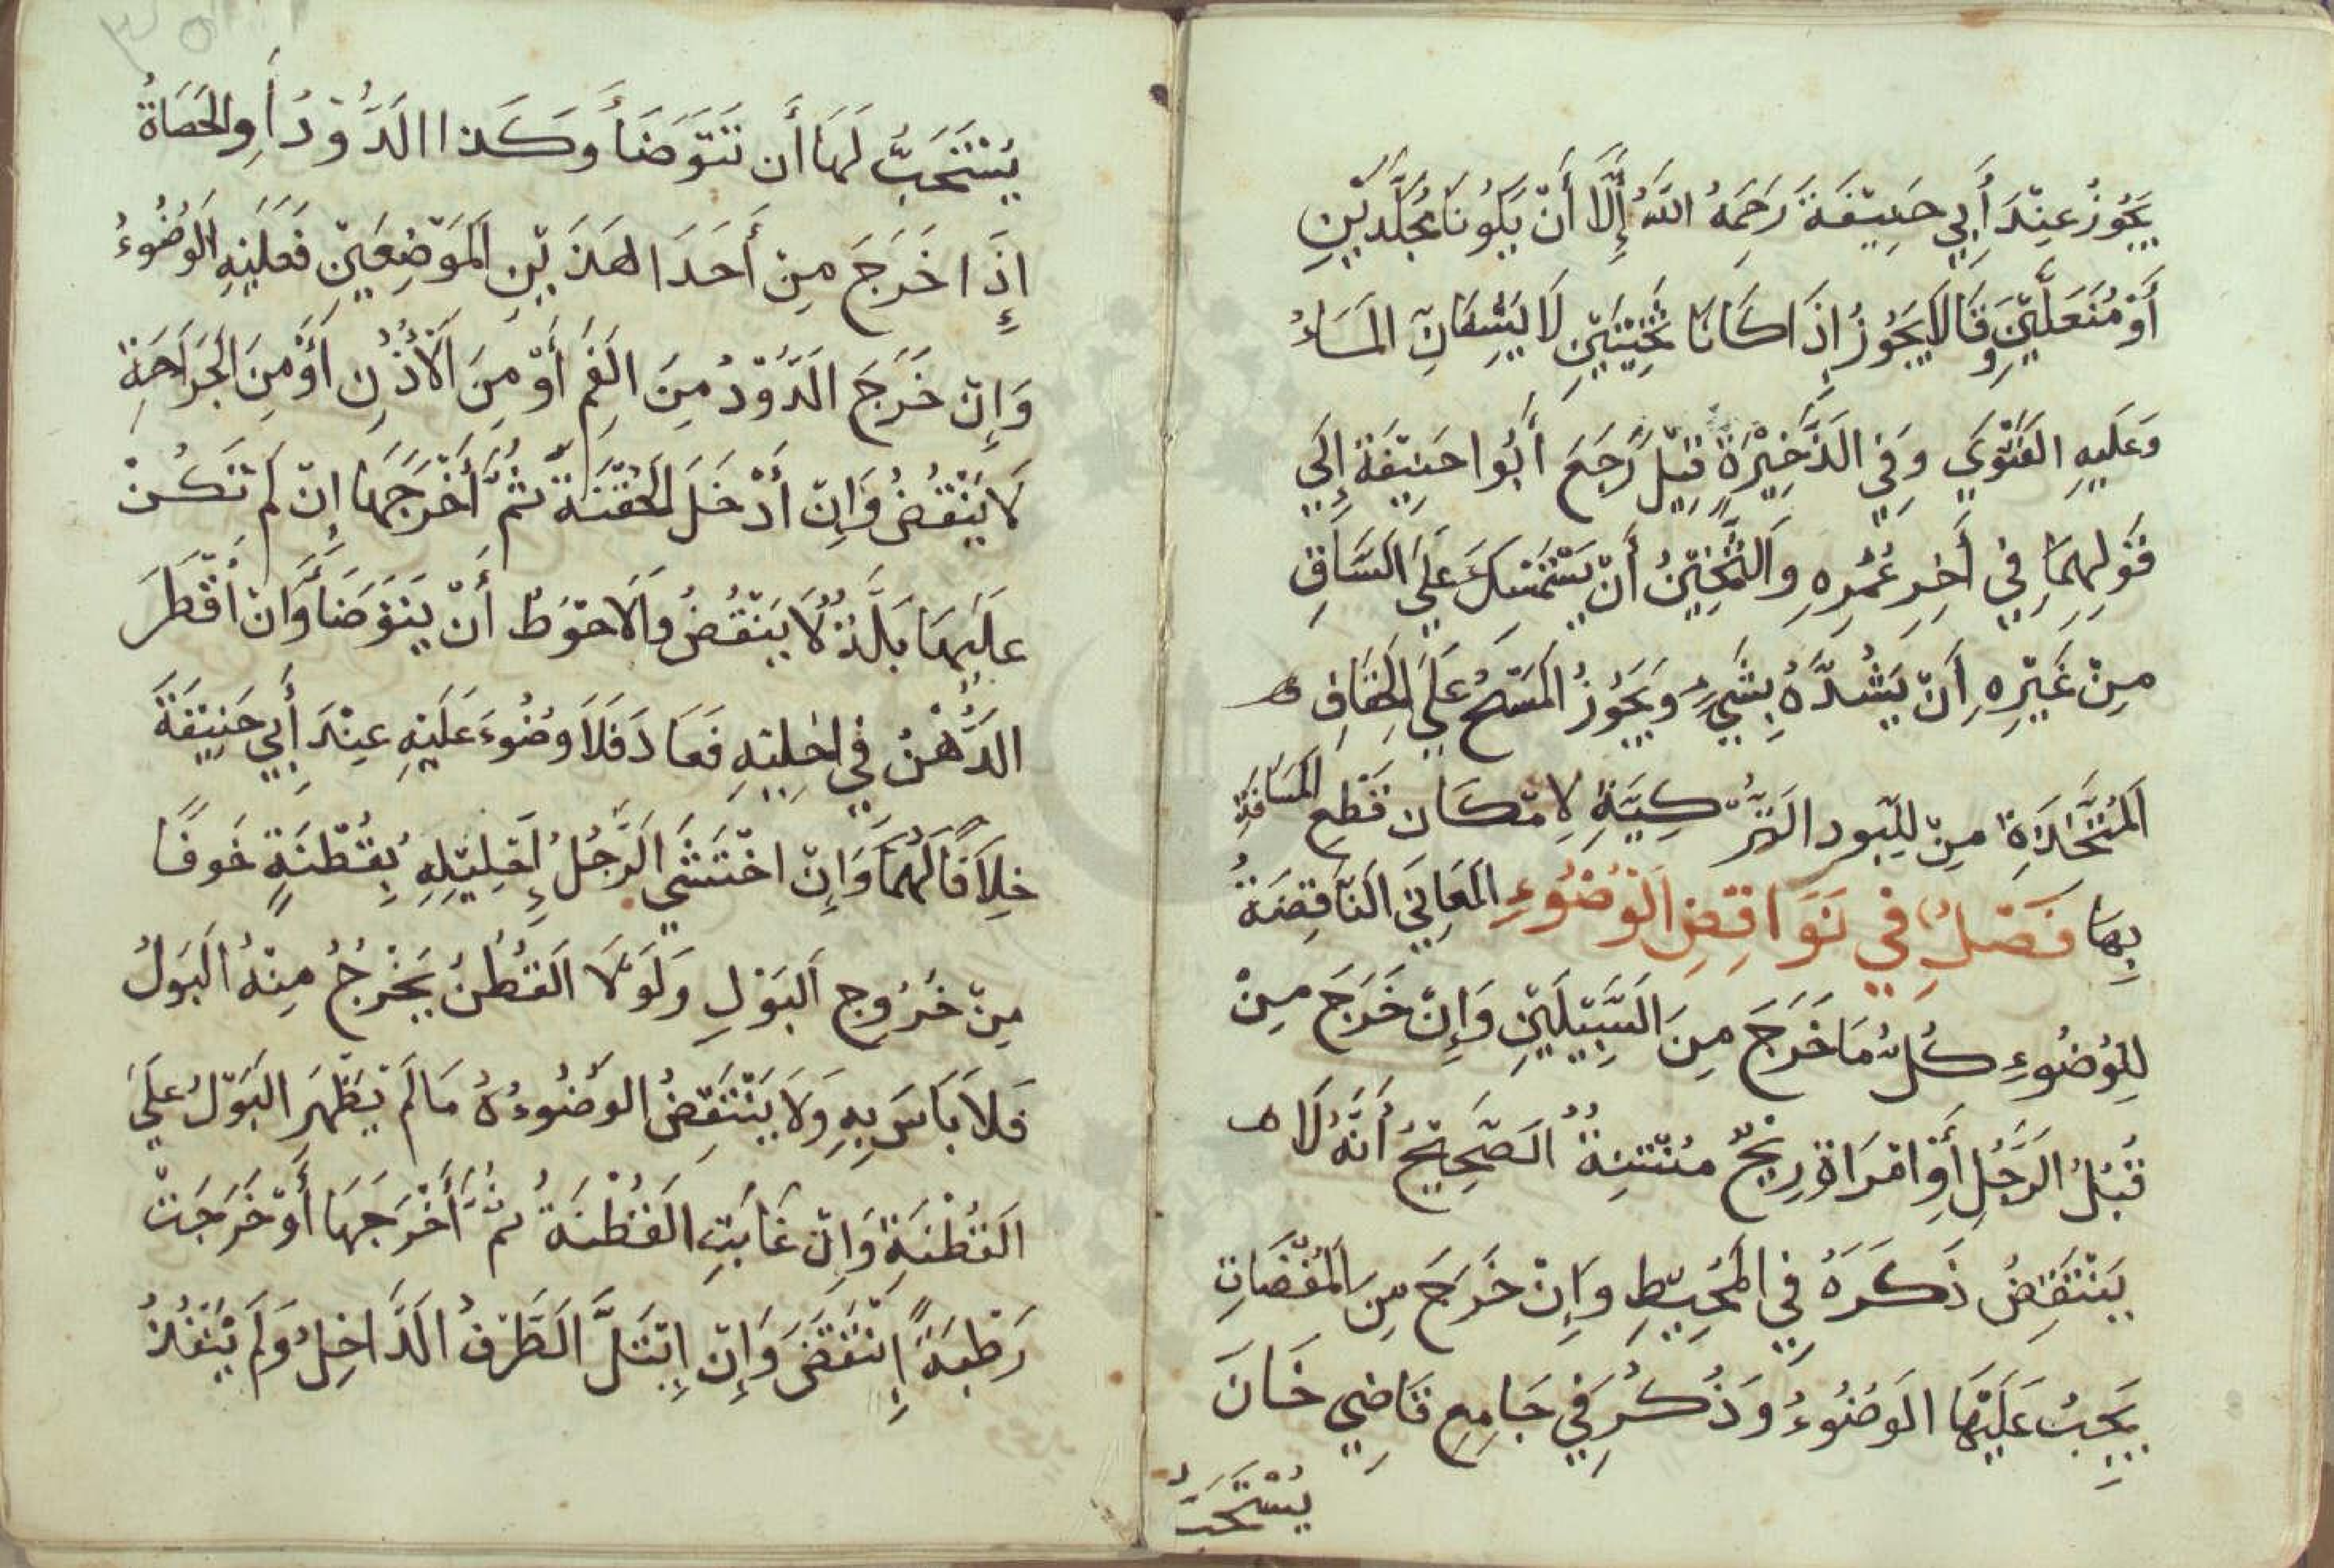 يَجُوْزُ عِنْدَ أَبِي حَنِيْفَةَ رَحِمَهُ اللهُ إِلَّا أَنْ يَكُوْنَا مُجَلَّدَيْنِ
أَوْ مُنَعَّلَيْنِ وَقَالَا يَجُوْزُ إِذَا كَانَا ثَخِيْنَيْنِ لَا يَشِفَّانِ المَاءُ
وَعَلَيهِ الفَتْوَي وَفِي الذَّخِيْرَةِ قِيْلَ رَجَعَ أَبُوا حَنِيْفَةَ إِلَي
قَوْلِهِمَا فِي أَخِرِ عُمُرِهِ وَالثَّخِيْنُ أَنْ يَسْتَمْسِكَ عَلَي السَّاقِ
مِنْ غَيْرِهِ أَنْ يَشُدَّهُ بِشَيءٍ وَيَجُوْزُ المَسْحُ عَلَي الخِفَافِ
المُتَّخَذَاةِ مِنْ للِّبَود التُّرْكِيَّةِ لِامْكَان قَطِع المَسَافَةِ
بِهَا فَصْلٌ فِي نَوَاقِضِ الوُضُوْءِ المَعَانِيَ النَاقِضَةُ
لِلوُضُوءِ كُلُّ مَا خَرَجَ مِنَ السَّبِيْلَيْنِ وَإِنْ خَرَجَ مِنْ
قُبُلِ الرَّجُلِ أَوِ امْرَاةٍ رِيْحٌ مُنْتِنَةٌ الصَّحِيْحُ أَنَّهُ لَا
يَنْتَقِضُ ذَكَرَهُ فِي المُحِيْطِ وَإِنْ خَرَجَ مِنَ المُفْضَاتِ
يَجِبُ عَلَيْهَا الوَضُوءُ وَذُكُرَ فِي جَامِعِ قَاضِي خَانَ
يُسْتَحَبُّ
يُسْتَحَبُّ لَهَا أَن تَتَوَضَأَ وَكَذا الدُّوْدُ أَوِ الحَصَاةُ
إِذَا خَرَجَ مِنْ أَحَدَ الهَذَيْنِ المَوْضِعَيْنِ فَعَلَيْهِ الوُضُوءُ
وَإِنْ خَرَجَ الدُّوْدُ مِنَ الفَمِ أَوْ مِنَ الْأُذُنِ أَوْ مِنَ الجَرَاحَةِ
لَا يَنْقُضُ وَإِنْ أَدْخَلَ الحُقْنَةَ ثُمَّ أَخْرَجَهَا إِنْ لَم تَكُنْ
عَلَيْهَا بَلَّةٌ لَا يَنْقُضُ وَالاحْوَطُ أَنْ يَتَوَضَأَ وَانْ أُقْطَرَ
الدُّهْنُ فِي احْلِيْلِهِ فَعَادَ فَلَا وُضُوءَ عَلَيْهِ عِنْدَ أَبِي حَنِيْفَةَ
خِلَافًا لَهُمَا وَإِنْ احْتَشَي الرَّجُلُ إِحْلِيْلِهِ بِقُطْنَةٍ خَوفًا
مِنْ خُرُوجِ البَوْلِ وَلَوْلَا القُطْنُ يَخْرُجُ مِنْهُ البَولُ
فَلَا بَاسَ بِهِ وَلَا يَنْتَقِضُ الوضُوءُهُ مَا لَمْ يَظْهَرِ البَوْلُ عَلَي
القُطْنَةِ وَإِنْ غَابَتِ القُطْنَةُ ثُمَّ أَخْرَجَهَا أَوْ خَرَجَتْ
رَطْبَةً إِنْتَقَضَ وَإِنْ إِبْتَلَّ الطَّرْفُ الدَّاخِلُ وَلَمْ يَنْفُذْ